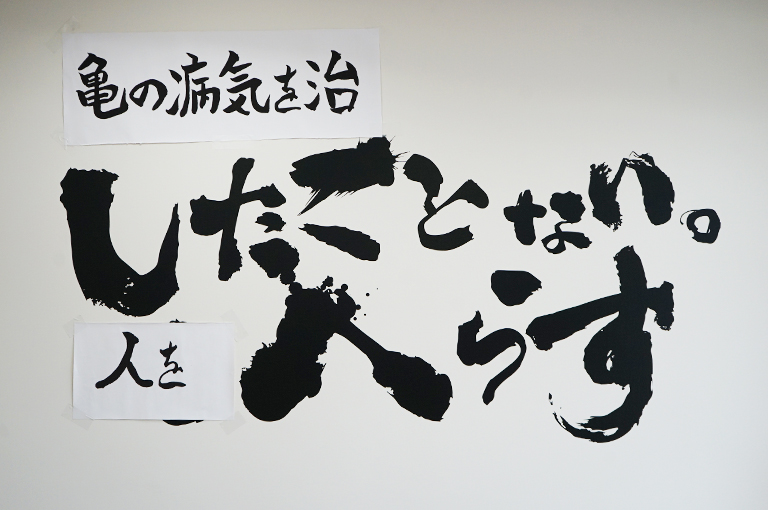 亀の病気を治
したことない。
人を
へらす